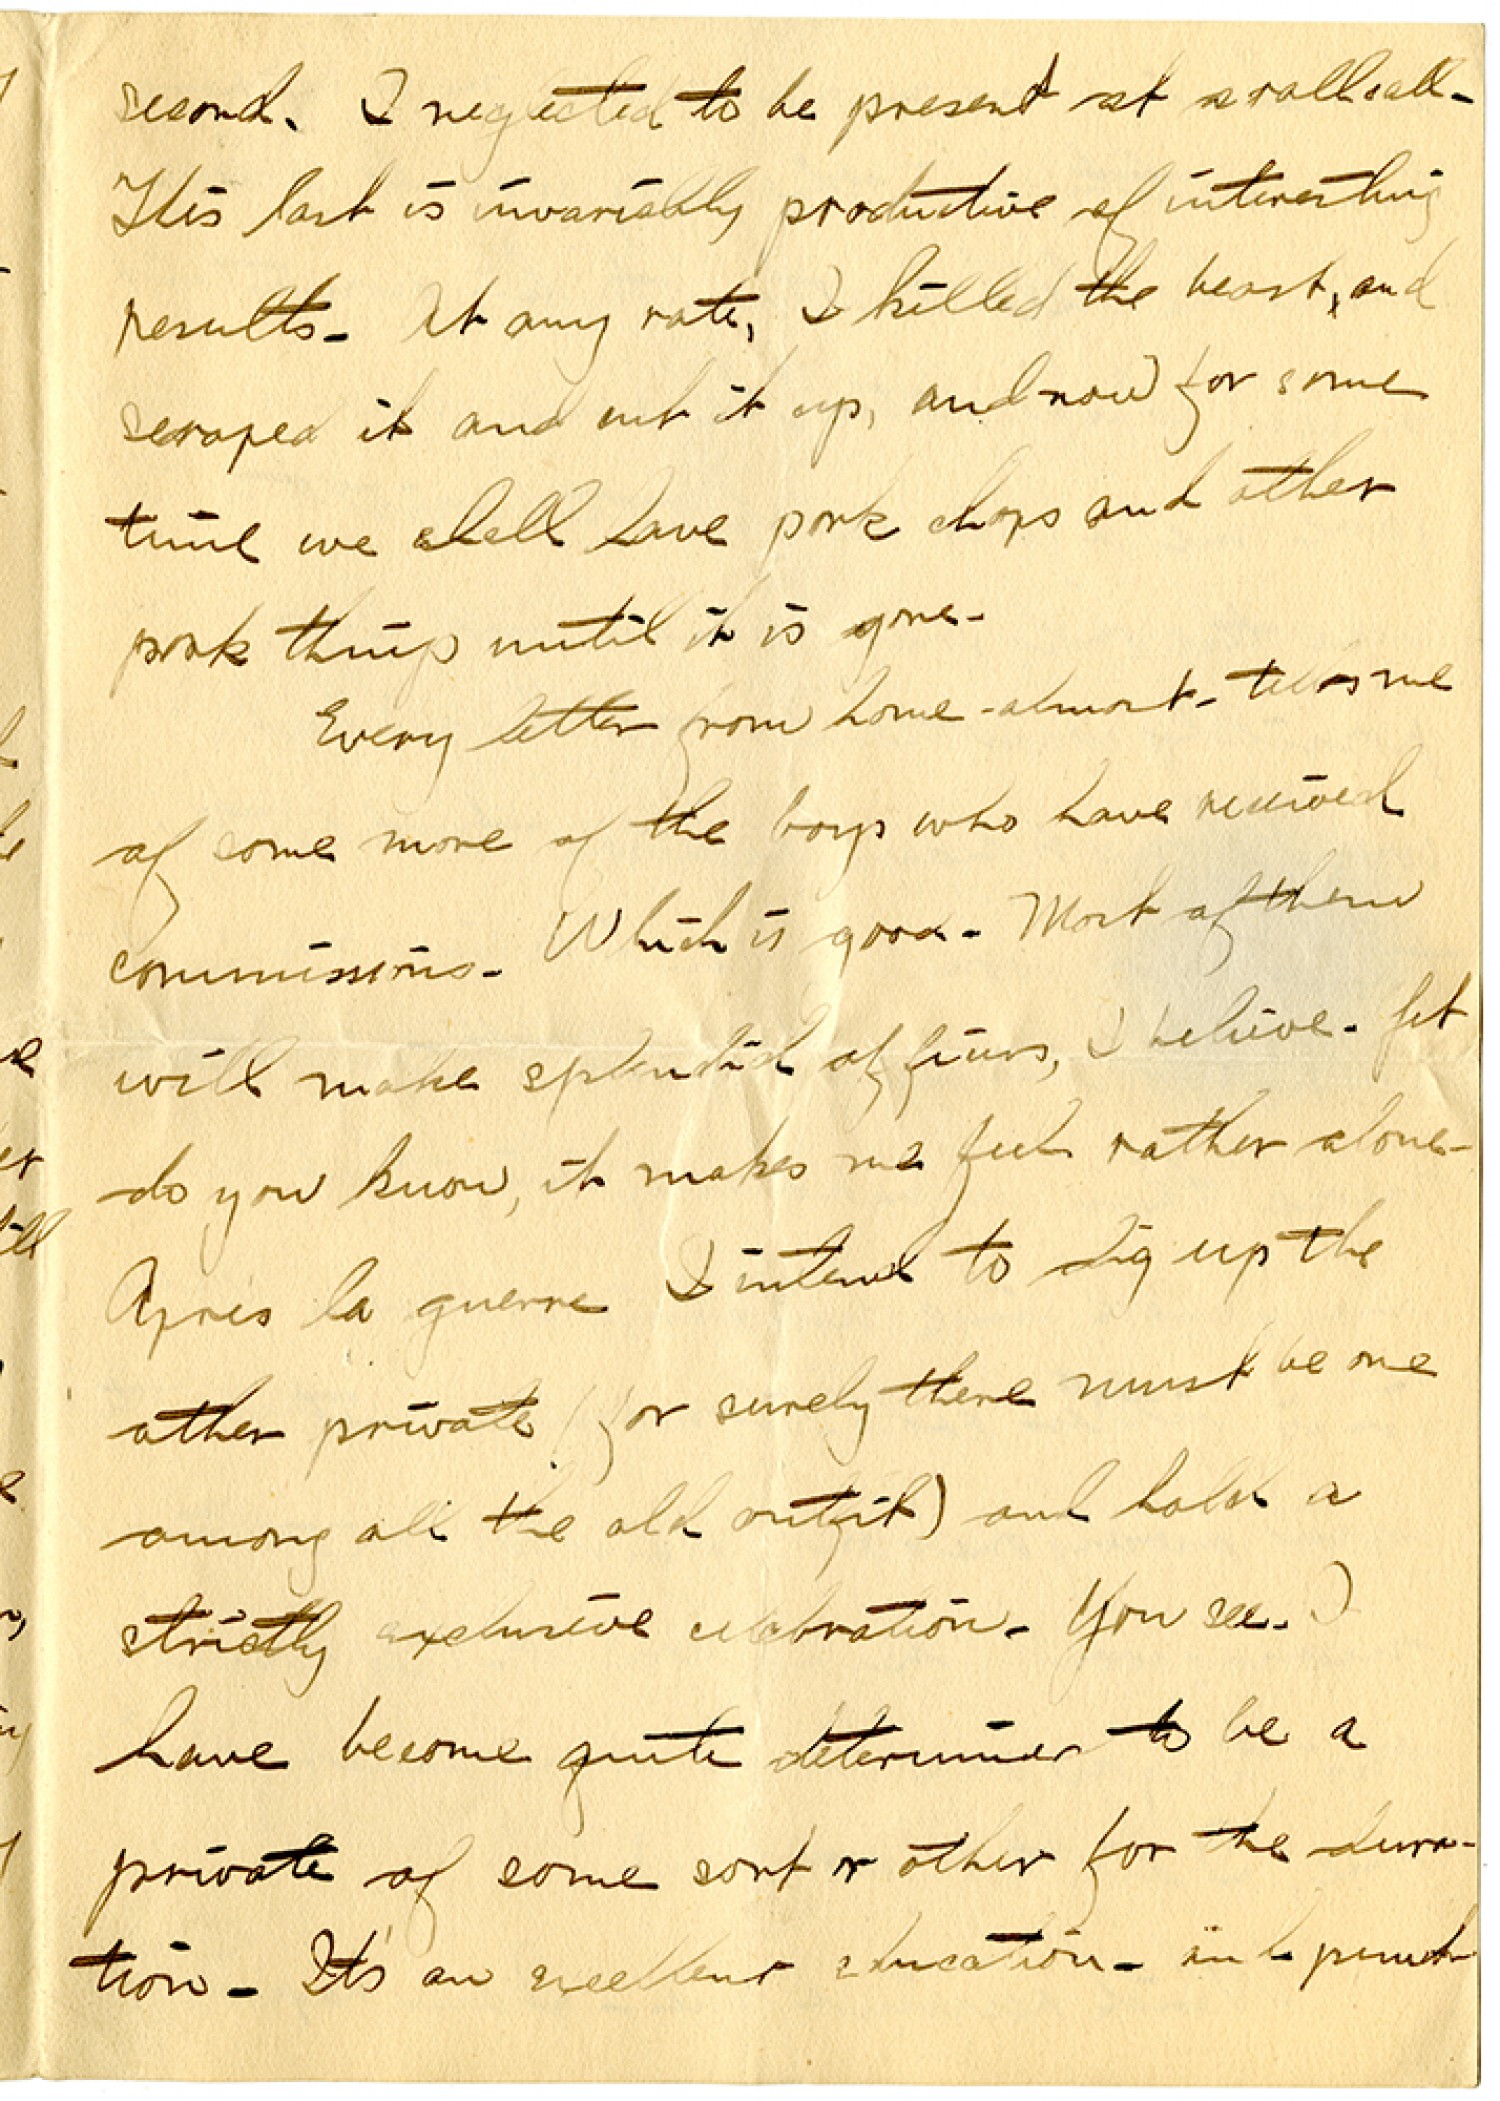 second. I neglected to be present at a roll call-
This last is invariably productive of interesting
results- At any rate, I killed the beast, and
scraped it and cut it up, and now for some
time we shall have pork chops and other
pork things until it is gone-
Every letter from home -almost- tells me
of some more of the boys who have received
commissions- Which is good- Most of them
will make splendid officers, I believe- Yet
do you know, it makes me feel rather alone-
Après la guerre I intend to dig up the
other private (for surely there must be one
among all the old outfit) and hold a
strictly exclusive celebration- You see- I
have become quite determined to be a
private of some sort or other for the dura-
tion- It's an excellent education-